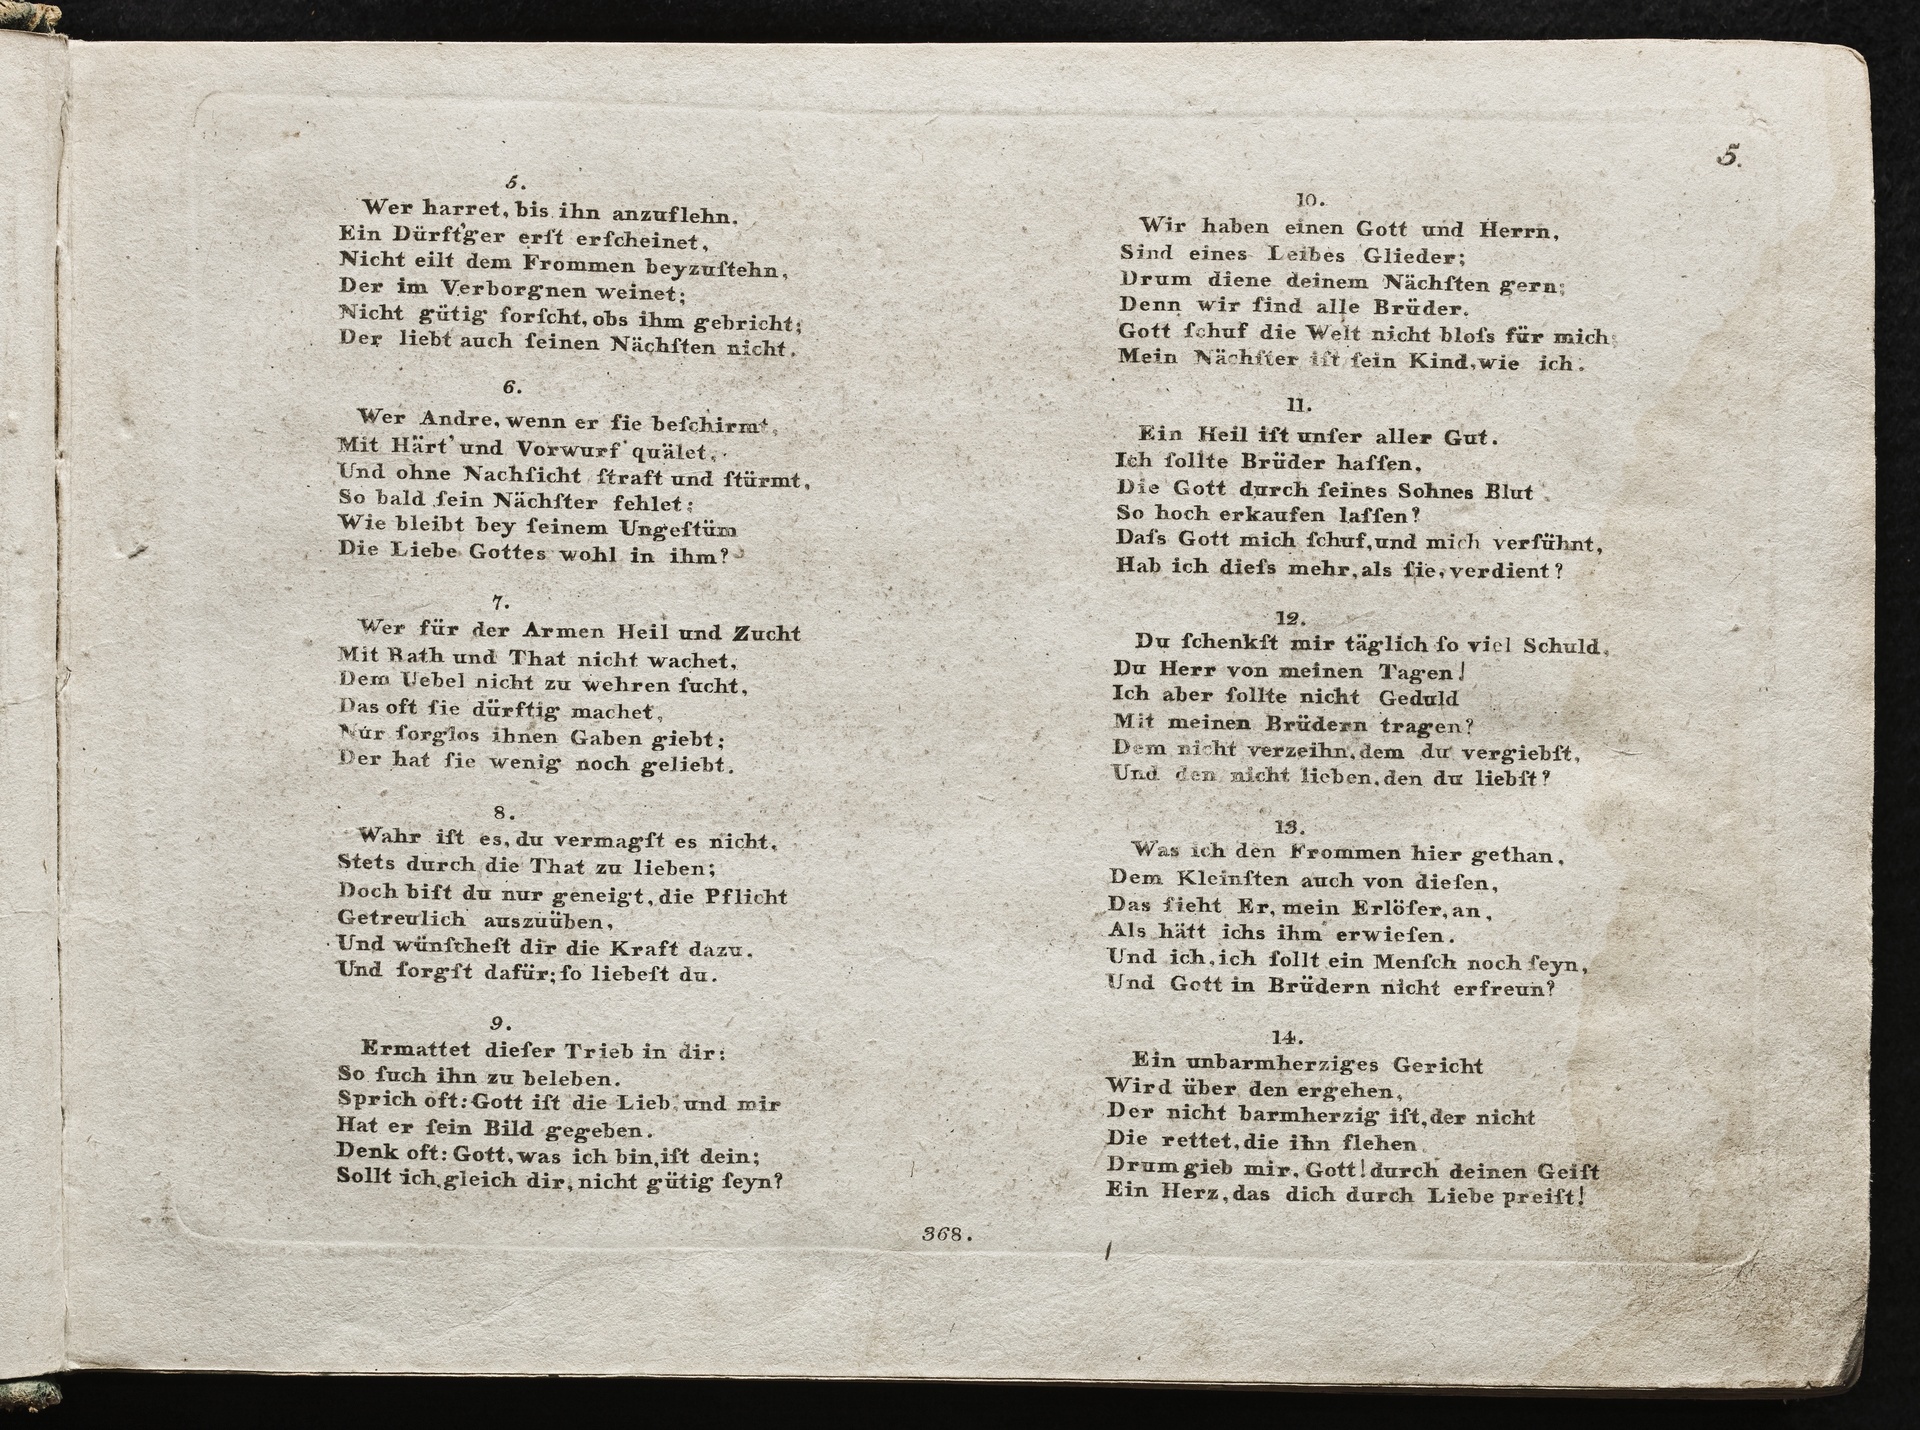 5.
5.
Wer harret, bis ihn anzuflehn.
Ein Dürft'ger erſt erſcheinet,
Nicht eilt dem Frommen beyzuſtehn,
Der im Verborgnen weinet;
Nicht gütig forſcht, obs ihm gebricht;
Der liebt auch ſeinen Nächſten nicht.
6.
Wer Andre, wenn er ſie beſchirmt,
Mit Härt' und Vorwurf quälet,
Und ohne Nachſicht ſtraft und ſtürmt,
So bald ſein Nächſter fehlet;
Wie bleibt bey ſeinem Ungeſtüm
Die Liebe Gottes wohl in ihm?
7.
Wer für der Armen Heil und Zucht
Mit Rath und That nicht wachet,
Dem Uebel nicht zu wehren ſucht,
Das oft ſie dürftig machet,
Nur ſorglos ihnen Gaben giebt;
Der hat ſie wenig noch geliebt.
8.
Wahr iſt es, du vermagſt es nicht,
Stets durch die That zu lieben;
Doch biſt du nur geneigt, die Pflicht
Getreulich auszuüben,
Und wünſcheſt dir die Kraft dazu.
Und ſorgſt dafür; ſo liebeſt du.
9.
Ermattet dieſer Trieb in dir:
So ſuch ihn zu beleben.
Sprich oft: Gott iſt die Lieb, und mir
Hat er ſein Bild gegeben.
Denk oft: Gott, was ich bin, iſt dein;
Sollt ich, gleich dir, nicht gütig ſeyn?
10.
Wir haben einen Gott und Herrn,
Sind eines Leibes Glieder;
Drum diene deinem Nächſten gern;
Denn wir ſind alle Brüder.
Gott ſchuf die Welt nicht bloſs für mich;
Mein Nächſter iſt ſein Kind, wie ich.
11.
Ein Heil iſt unſer aller Gut.
Ich ſollte Brüder haſſen,
Die Gott durch ſeines Sohnes Blut
So hoch erkaufen laſſen?
Daſs Gott mich ſchuf, und mich verſühnt,
Hab ich dieſs mehr, als ſie, verdient?
12.
Du ſchenkſt mir täglich ſo viel Schuld,
Du Herr von meinen Tagen!
Ich aber ſollte nicht Geduld
Mit meinen Brüdern tragen?
Dem nicht verzeihn, dem du vergiebſt,
Und den nicht lieben, den du liebſt?
13.
Was ich den Frommen hier gethan,
Dem Kleinſten auch von dieſen,
Das ſieht Er, mein Erlöſer, an,
Als hätt ichs ihm erwieſen.
Und ich, ich ſollt ein Menſch noch ſeyn,
Und Gott in Brüdern nicht erfreun?
14.
Ein unbarmherziges Gericht
Wird über den ergehen,
Der nicht barmherzig iſt, der nicht
Die rettet, die ihn flehen
Drum gieb mir, Gott! durch deinen Geiſt
Ein Herz, das dich durch Liebe preiſt!
368.